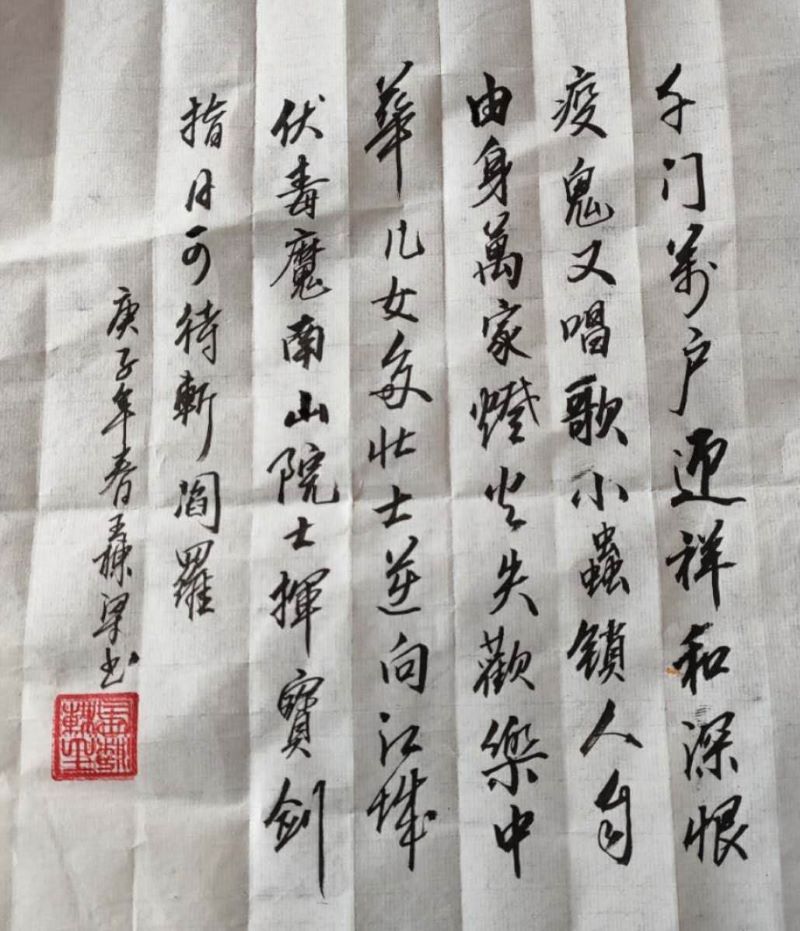 千门萬户迎祥和深恨
疫鬼又唱歌小蟲鎖人自
由身萬家燈火失歡樂中
華儿女多壮士逆向江城
伏毒魔南山院士揮寶劍
指日可待斬阎羅
庚子年春王棟梁书